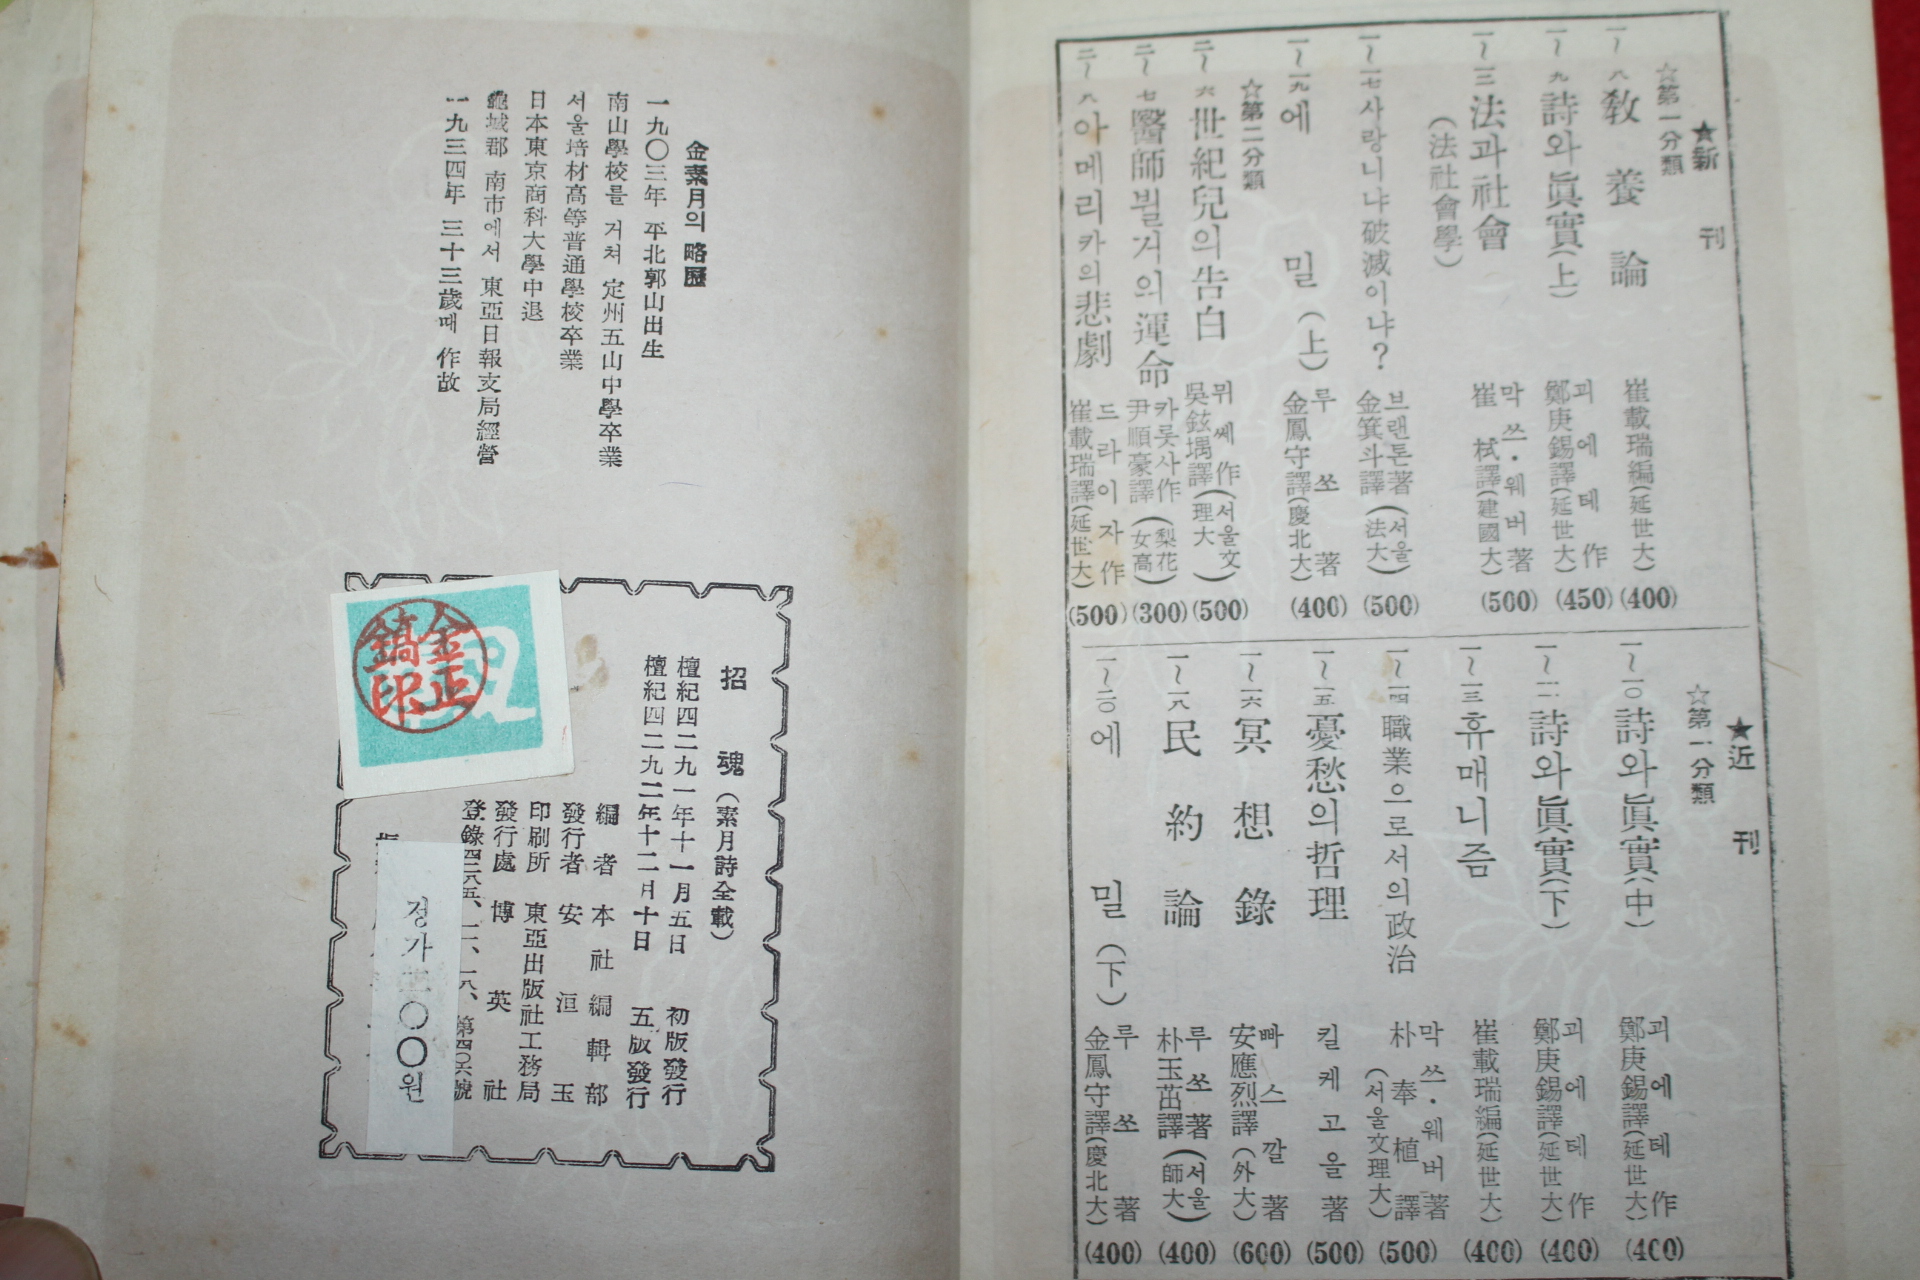 ★新刊
☆第一分類
一~八 敎養論 崔載瑞編(延世大) (400)
一~九 詩와眞實(上) 괴에테作 鄭庚錫譯(延世大) (450)
一~一三 法과社會(法社會學) 막쓰·웨버著 崔栻譯(建國大) (500)
一~一七 사랑니냐破滅이냐? 브랜튼著 金箕斗譯(서울法大) (500)
一~一九 에밀(上) 루쏘著 金鳳守譯(慶北大) (400)
☆第二分類
二~六 世紀兒의告白 뮈쎄作 吳鉉堣譯(서울文理大) (500)
二~七 醫師뷜거의運命 카롯사作 尹順豪譯(梨花女高) (300)
二~八 아메리카의悲劇 드라이자作 崔載瑞譯(延世大) (500)
★近刊
☆第一分類
一~一〇 詩와眞實(中) 괴에테作 鄭庚錫譯(延世大) (400)
一~一一 詩와眞實(下) 괴에테作 鄭庚錫譯(延世大) (400)
一~一三 휴매니즘 崔載瑞編(延世大) (400)
一~一四 職業으로서의政治 막쓰·웨버著 朴奉植譯(서울文理大) (500)
一~一五 憂愁의哲理 킬케고올著 (500)
一~一六 冥想錄 빠스깔著 安應烈譯(外大) (600)
一~一八 民約論 루쏘著 朴玉茁譯(서울師大) (400)
一~二〇 에밀(下) 루쏘著 金鳳守譯(慶北大) (400)
金素月의 略歷
一九〇三年 平北郭山出生
南山學校를 거쳐 定州五山中學卒業
서울培材高等普通學校卒業
日本東京商科大學中退
龜城郡 南市에서 東亞日報支局經營
一九三四年 三十三歲때 作故
招魂(素月詩全載)
檀紀四二九一年十一月五日 初版發行
檀紀四二九二年十二月十日 五版發行
編者 本社編輯部
發行者 安洹玉
印刷所 東亞出版社工務局
發行處 博英社
登錄四二八五、一二、一八、第四〇六號
정가 〇〇원
金正鎬印